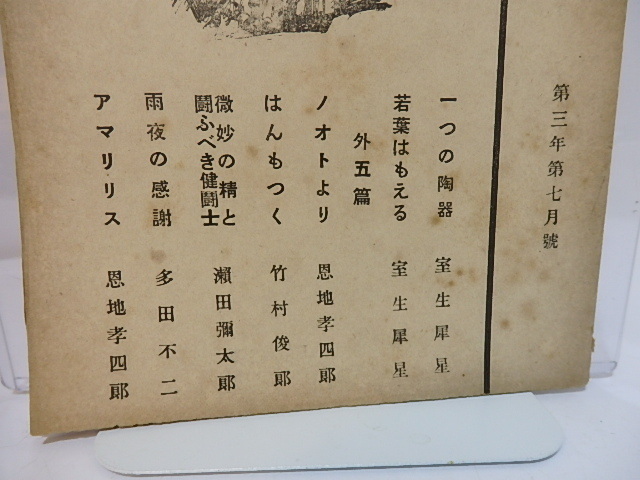 第三年第七月號
一つの陶器 室生犀星
若葉はもえる 室生犀星
外五篇
ノオトより 恩地孝四郎
はんもつく 竹村俊郎
微妙の精と
闘ふべき健闘士 瀬田彌太郎
雨夜の感謝 多田不二
アマリリス 恩地孝四郎